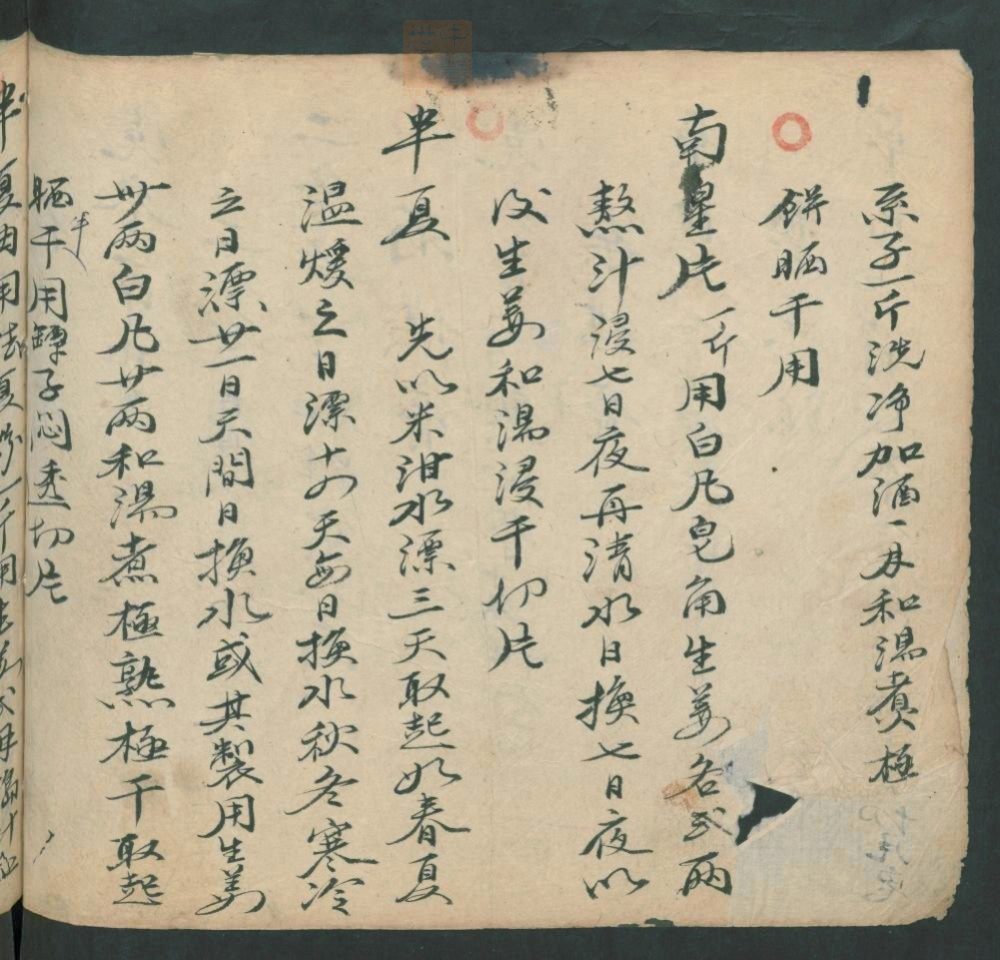 系子一斤洗净加酒一斤和湯煮極
餅晒干用
南星片一斤用白凡皂角生姜各弍両
熬汁浸七日夜再清水日換七日夜以
後生姜和湯浸干切片
半夏 先以米泔水漂三天取起如春夏
温煖之日漂十四天每日換水秋冬寒冷
之日漂廿一日天間日換水或其製用生姜
卅両白凡廿両和湯煮極熟極干取起
晒半干用罈子悶透切片
半夏曲用法夏一斤用生姜